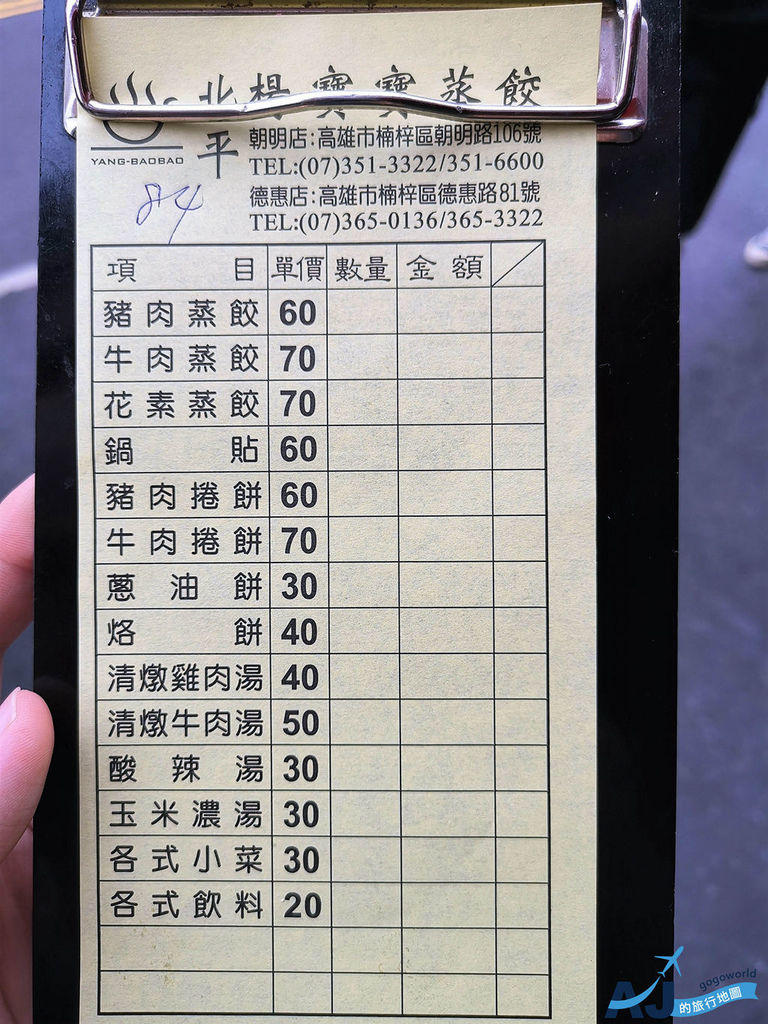 北平 楊寶寶蒸餃
YANG-BAOBAO
朝明店:高雄市楠梓區朝明路106號
TEL:(07)351-3322/351-6600
德惠店:高雄市楠梓區德惠路81號
TEL:(07)365-0136/365-3322
84
項目 單價 數量 金額
豬肉蒸餃 60
牛肉蒸餃 70
花素蒸餃 70
鍋貼 60
豬肉捲餅 60
牛肉捲餅 70
蔥油餅 30
烙餅 40
清燉雞肉湯 40
清燉牛肉湯 50
酸辣湯 30
玉米濃湯 30
各式小菜 30
各式飲料 20
AJ的旅行地圖
gogoworld